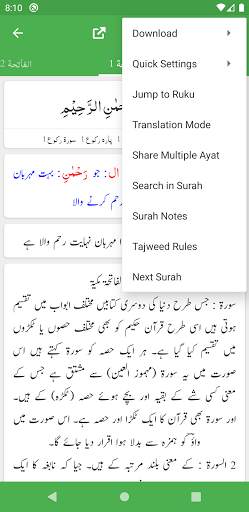 8:10
الفاتحة 2
1
Download
Quick Settings
Jump to Ruku
Translation Mode
Share Multiple Ayat
Search in Surah
Surah Notes
Tajweed Rules
Next Surah
الرَّحِیْمِ
پارہ رکوع 1 سورۃ رکوع 1
ال: جو رَحْمٰنِ: بہت مہربان
رحم کرنے والا
مہربان نہایت رحم والا ہے
الفاتحۃ مکیۃ
سورۃ : جس طرح دنیا کی دوسری کتابیں مختلف ابواب میں تقسیم
ہوتی ہیں اسی طرح قرآن حکیم کو بھی مختلف حصوں یا ٹکڑوں
میں تقسیم کیا گیا ہے۔ ہر ایک حصہ کو سورۃ کہتے ہیں اس
صورت میں یہ سورۃ (مہموز العین) سے مشتق ہے جس کے
معنی کسی شے کے بقیہ اور بچے ہوئے حصہ (ٹکڑہ) کے ہیں۔
سورۃ بھی قرآن کا ایک ٹکڑا اور حصہ ہے۔ اس صورت میں
واؤ کو ہمزہ سے بدلا ہوا قرار دیا جائے گا۔
2 السورۃ : کے معنی بلند مرتبہ کے ہیں۔ جیسا کہ نابغہ کا ایک